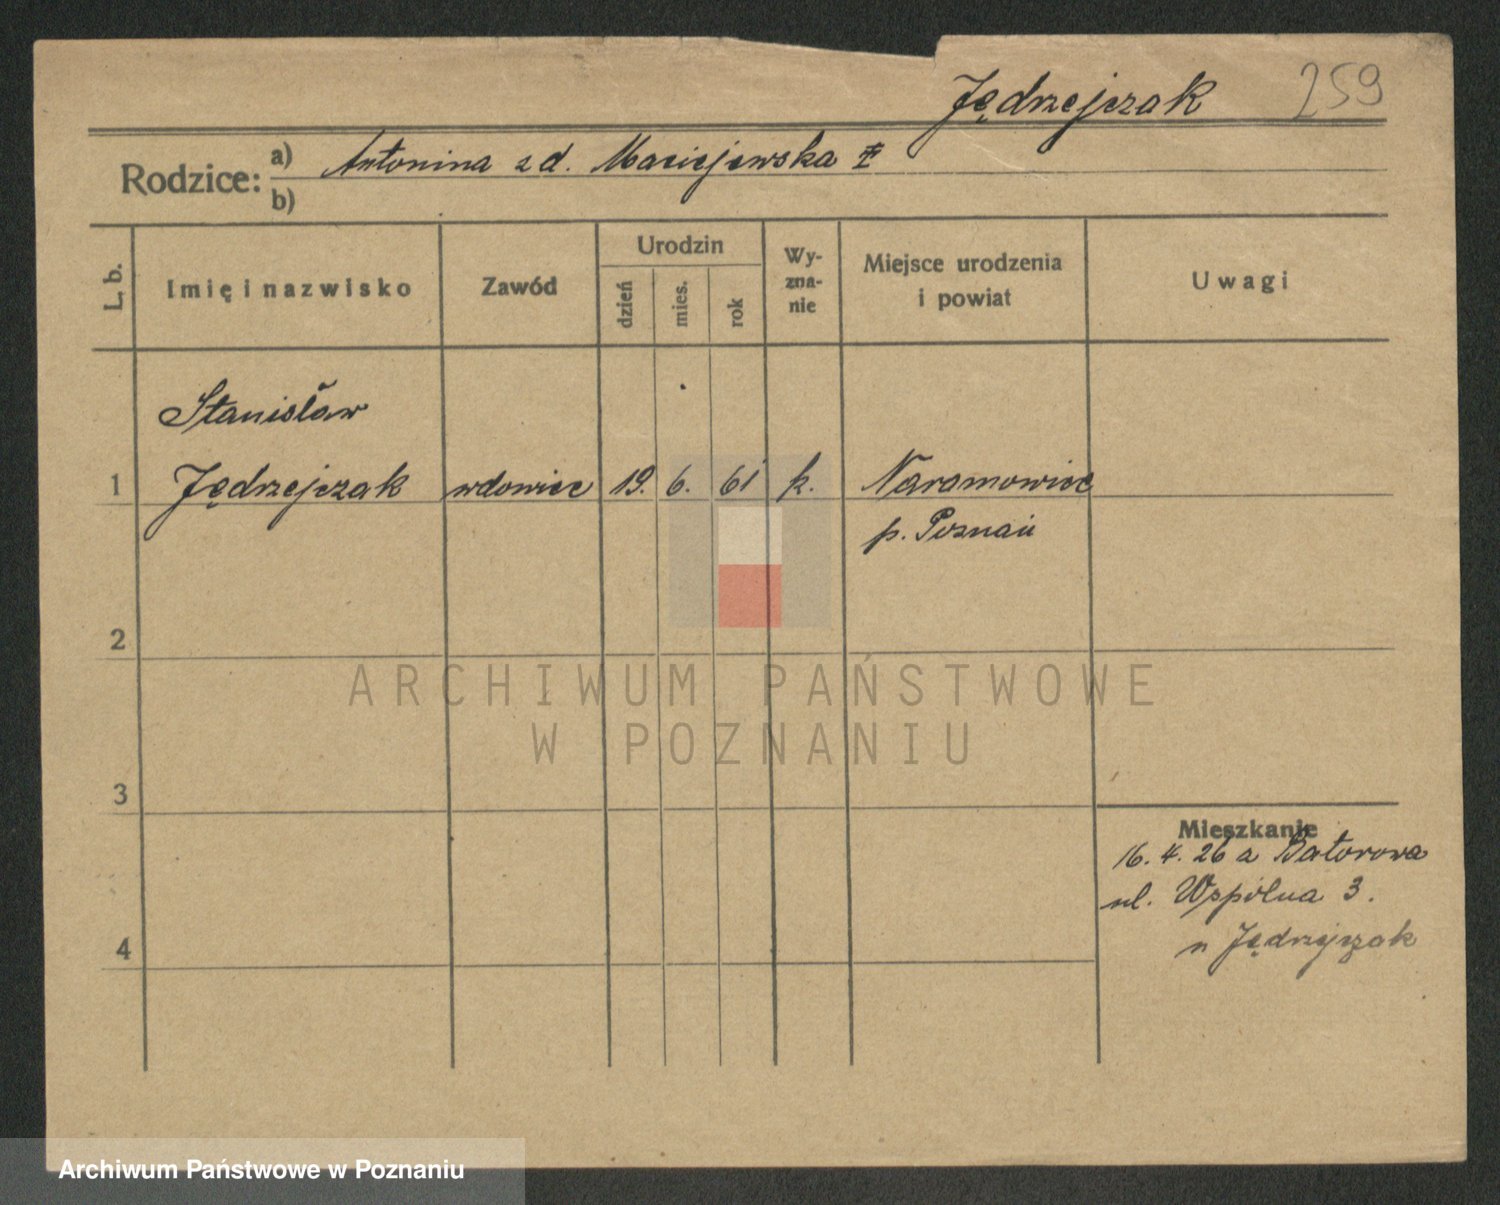 Jędrzejczak 259
Rodzice: a) Antonina z d. Maciejewska
b)
L. b. Imię i nazwisko Zawód Urodzin dzień mies. rok Wyznanie Miejsce urodzenia i powiat Uwagi
Stanisław
1 Jędrzejczak wdowiec 19. 6. 61 k. Naramowice
p. Poznań
2
3
Mieszkanie
16. 4. 26 a Batorowa
ul. Wspólna 3.
4 n Jędrzejczak
ARCHIWUM PAŃSTWOWE
W POZNANIU
Archiwum Państwowe w Poznaniu